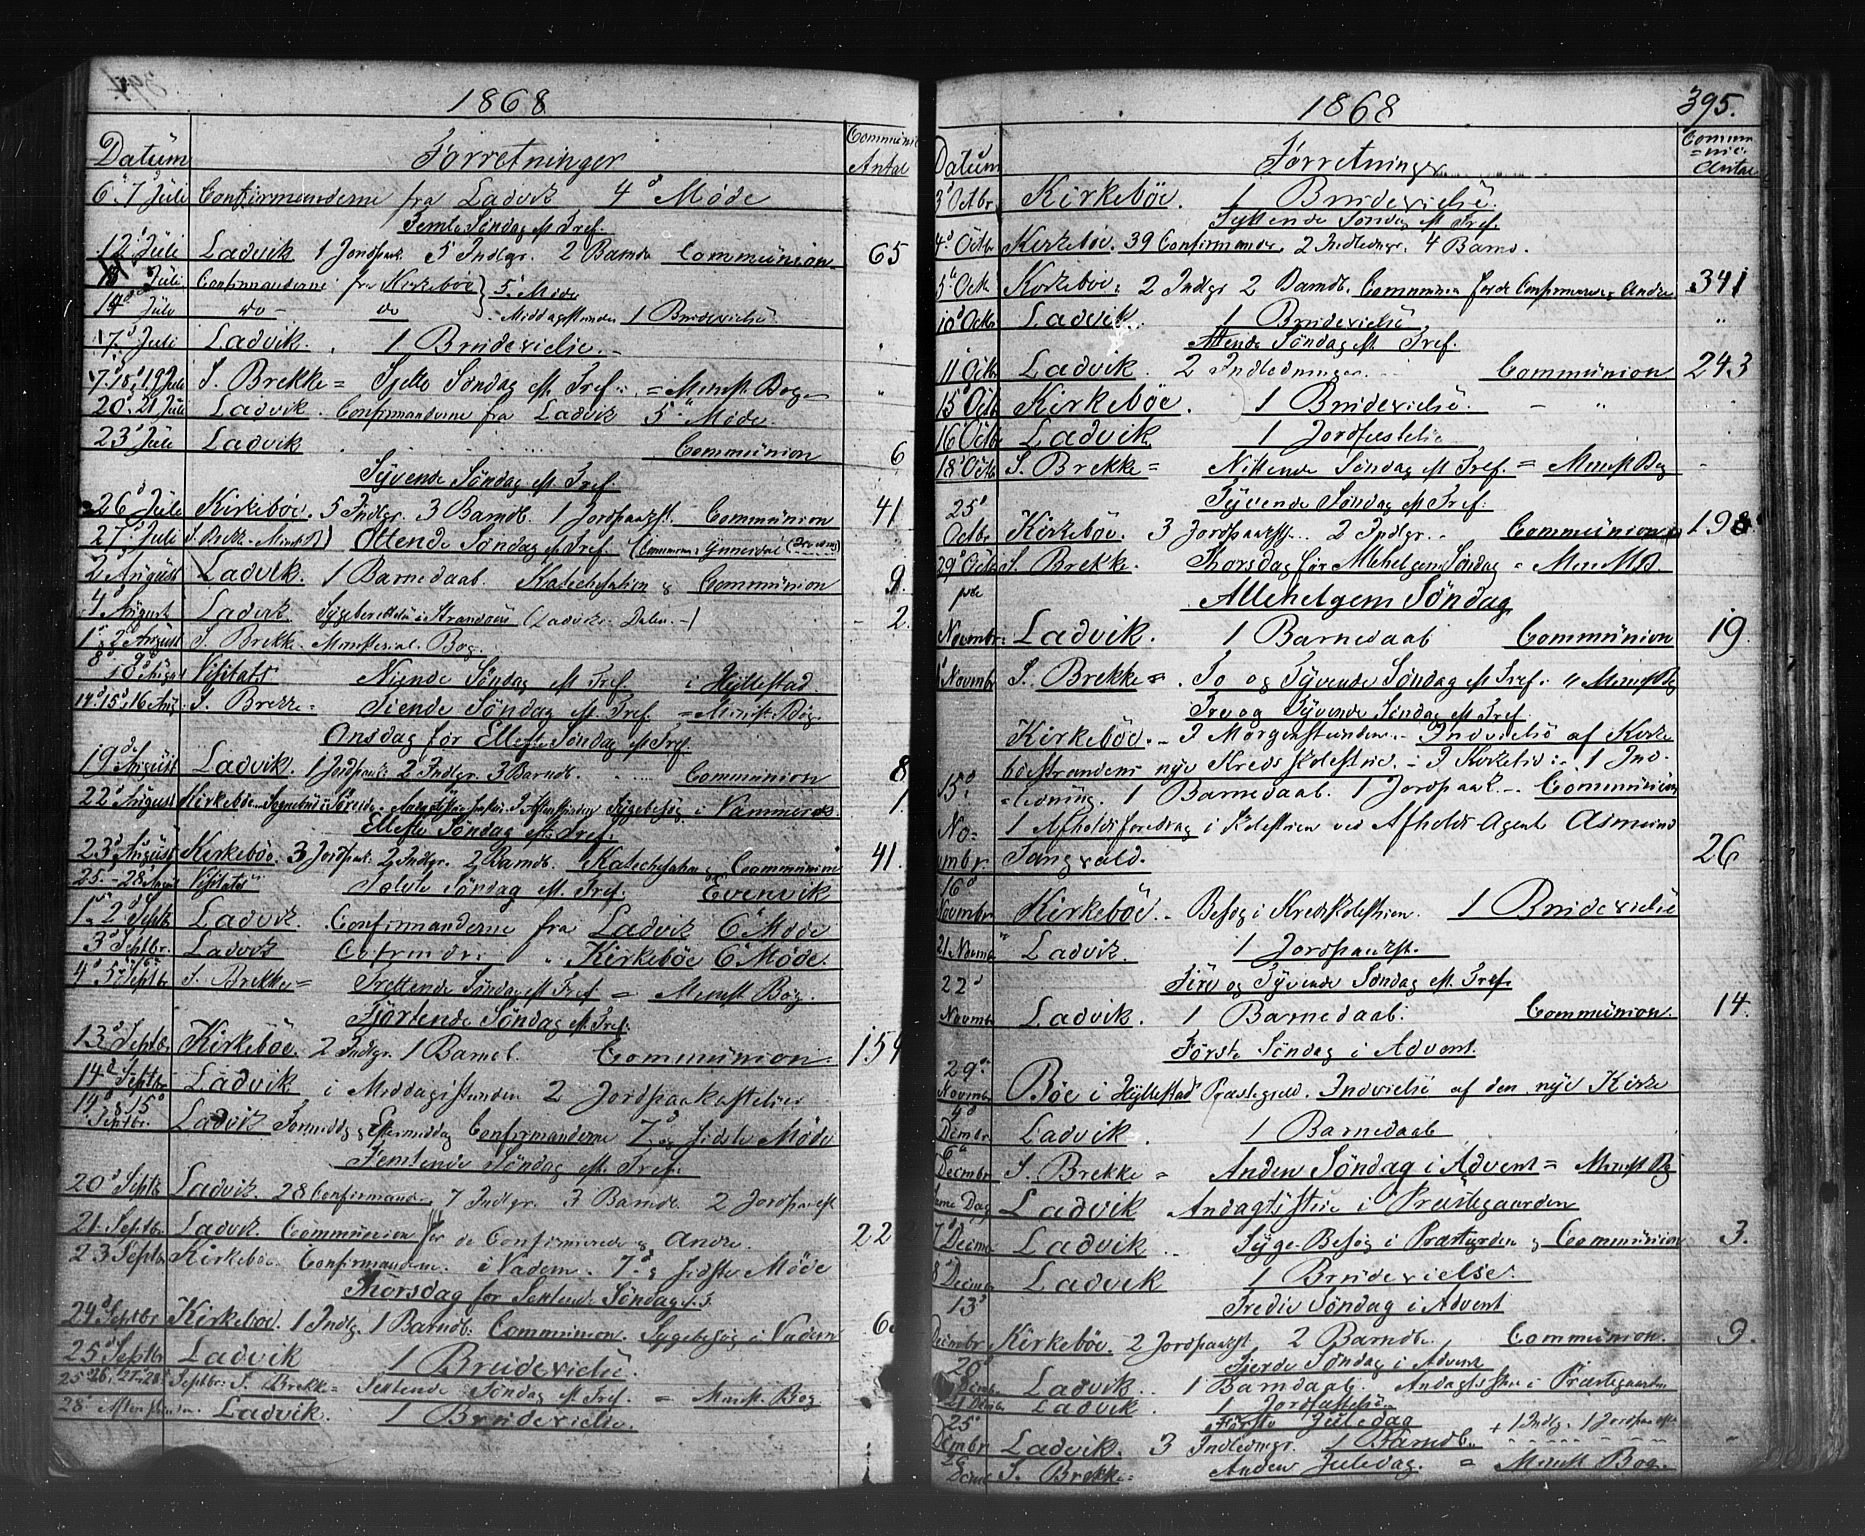 394.
1868
Datum Forretninger Communic Antal
6. 7 Juli Confirmanderne fra Ladvik 4de Møde
Femte Søndag eft Tref.
12 Juli Ladvik 1 Jordpaak. 5 Indlgr. 2 Barnda Communion. 65
Juli Confirmanderne fra Kirkebøe 5 Møde
14 Juli do - do Middagsstunden 1 Brudevielse
17 Juli Ladvik. 1 Brudevielse.
17. 18. 19 Juli S. Brekke = Sjette Søndag eft Tref. = Minist. Bog
20. 21 Juli Ladvik. Confirmanderne fra Ladvik 5 Møde.
23 Juli Ladvik Communion 6
Syvende Søndag eft Tref.
26 Juli Kirkebøe. 5 Indlgr. 3 Barndb. 1 Jordpaakst. Communion 41
27 Juli S. Brekke - Ottende Søndag eft Tref.
2 August Ladvik. 1 Barnedaab. Katechisation & Communion 9.
4 August Ladvik Sygeberettelse i Strandøens (Ladviks Dalen -) - 2.
1. 2 August S. Brekke. Ministerial Bog.
8 9 10 August Visitats Niende Søndag eft Tref i Hyllestad
14. 15. 16 Aug. S. Brekke = Tiende Søndag eft Tref. = Minist. Bog
Onsdag før Ellefte Søndag eft Tref.
19 August Ladvik. 1 Jordpaak. 2 Indlgr. 3 Barndb. Communion 8
22 August Kirkebøe. Sognebud i
Ellefte Søndag eft Tref.
23 August Kirkebøe. 3 Jordpaak. 2 Indlgr. 2 Barndb. Katechisation & Communion 41.
25. - 28 August Visitats Tolvte Søndag eft. Tref. Evenvik
1. 2 Septbr Ladvik Confirmanderne fra Ladvik 6 Møde
3 Septbr. Ladvik Cofrmdr. " Kirkebøe 6 Møde.
4 5 6 Septbr S. Brekke = Trettende Søndag eft Tref = Minist Bog.
Fjortende Søndag eft. Tref.
13 Septbr. Kirkebøe. 2 Indlgr. 1 Barneb. Communion. 159
14 Septbr Ladvik i Middagsstunden 2 Jordpaakastelser
14 & 15 Septbr. Ladvik Formiddg & Eftermiddag Confirmanderne 7 og sidste Møde
Femtende Søndag eft. Tref.
20 Septbr Ladvik. 28 Confirmand. 7 Indlgr. 3 Barndb. 2 Jordpaakst
21. Septbr. Ladvik. Communion for de Confirmerede & Andre. 22
23 Septbr Kirkebøe. Confirmandern. i Vadem. 7 & sidste Møde
Thorsdag før Sextende Søndag e. T.
24 Septbr. Kirkebøe. 1 Indlg. 1 Barndb. Communion. Sygebesøg i Vadem 6
25 Septbr Ladvik 1 Brudevielse.
25. 26. 27. 28. Septbr. S. Brekke = Sextende Søndag eft Tref. = Minist. Bog
28 Aftenstunden. Ladvik. 1 Brudevielse.
1868 395.
Datum Forretninger Commu=nic. Antal
3 Octbr. Kirkebøe. 1 Brudevielse.
Syttende Søndag eft Tref.
4 Octbr Kirkebøe. 39 Confirmander 2 Indledngr. 4 Barnd.
5 Octb Kirkebøe. 2 Indgr 2 Barndb. Communion for de Confirmerede & Andre 341
10 Octbr Ladvik. 1 Brudevielse "
Attende Søndag eft Tref.
11 Octbr Ladvik. 2 Indledninger. Communion 243
15 Octb Kirkebøe. 1 Brudevielse. - "
16 Octbr Ladvik 1 Jordfæstelse
18 Octbr S. Brekke = Nittende Søndag eft Tref. = Minist Bog -
Tyvende Søndag eft Tref.
25 Octbr Kirkebøe. 3 Jordpaakst... 2 Indlgr. Communion 198
29 Octbr S Brekke. Thorsdag før Allehelgens Søndag = Minist B.
Allehelgens Søndag
Novembr. Ladvik. 1 Barnedaab Communion 19.
Novmbr S. Brekke = To og Tyvende Søndag eft Tref. " Minist Bg
Tre og Tyvende Søndag eft Tref.
Kirkebøe. - I Morgenstunden - Indvielse af Kirke
bøestrandens nye Kreds skolestue. - I Kirken: - 1 Ind=
15 =ledning. 1 Barnedaab. 1 Jordpaak. - Communion
No= 1 Afholdsforedrag i Skolestuen ved Afholds Agent Asmund
vmbr. Sangvald. 26
16 Novmbr Kirkebøe. - Besøg i Kredsskolestuen. 1 Brudevielse
21 Novmbr Ladvik. 1 Jordpaakst.
Fire og Tyvende Søndag eft. Tref.
22 Novmbr Ladvik. 1 Barnedaab. Communion. 14.
Første Søndag i Advent.
29 Novmbr Bøe i Hyllestad Præstegield. Indvielse af den nye Kirke
4 Decmbr Ladvik. 1 Barnedaab
6 Decmbr S. Brekke = Anden Søndag i Advent = Minist Bg
Samme Dag Ladvik Andagtstime i Præstegaarden
7 Decmbr Ladvik .. Syge-Besøg i Præstgrden & Communion 3.
8 Decmbr Ladvik 1 Brudevielse.
13 Tredie Søndag i Advent
Decmbr Kirkebøe. 2 Jordpaakst 2 Barndb. Communion. 9.
20 Fjerde Søndag i Advent
Decmbr Ladvik. 1 Barndaab. Andagtstime i Præstegaarden
21 Decmbr Ladvik. 1 Jordfæstelse
25 Første Juledag + 1 Indlg. 1 Jordpaakst
Decmbr Ladvik. 3 Indledngr. 1 Barndb. "
26 Decmbr S. Brekke = Anden Juledag. = Minist Bog.